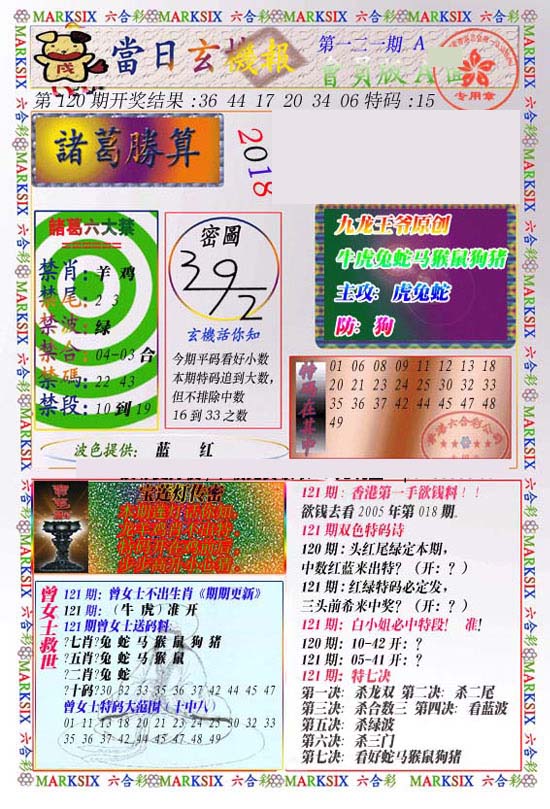 MARKSIX 六合彩 MARKSIX 六合彩 MARKSIX 六合彩 MARKSIX 六合彩
當日玄機報
第一二一期 A
專用章
第 120 期开奖结果 :36 44 17 20 34 06 特码 :15
諸葛勝算
2018
諸葛六大禁
禁肖: 羊 鸡
禁尾: 2 3
禁波: 绿
禁合: 04-03 合
禁碼: 22 43
禁段: 10 到 19
密圖
39/2
玄機话你知
今期平码看好小数
本期特码追到大数,
但不排除中数
16 到 33 之数
九龙王爷原创
牛虎兔蛇马猴鼠狗猪
主攻: 虎兔蛇
防: 狗
特码在其中
01 06 08 09 11 12 13 18
20 21 23 24 25 30 32 33
35 36 37 42 44 45 47 48
49
波色提供: 蓝 红
宝莲灯传密
曾女士救世
121 期: 曾女士不出生肖《期期更新》
121 期: (牛 虎) 准 开
121 期曾女士送码料:
?七肖?兔 蛇 马 猴 鼠 狗 猪
?五肖?兔 蛇 马 猴 鼠
?二肖?兔 蛇
?十码?30 32 33 35 36 37 42 44 45 47
曾女士特码大范围 (十中八)
01 11 13 18 20 21 23 24 25 30 32 33
35 36 37 42 44 45 47 48 49
121 期: 香港第一手欲钱料!!
欲钱去看 2005 年第 018 期.
121 期双色特码诗
120 期: 头红尾绿定本期,
中数红蓝来出特? (开: ?)
121 期: 红绿特码必定发,
三头前希来中奖? (开: ?)
121 期: 白小姐必中特段! 准!
120 期: 10-42 开: ?
121 期: 05-41 开: ?
121 期: 特七决
第一决: 杀龙双 第二决: 杀二尾
第三决: 杀合数三 第四决: 看蓝波
第五决: 杀绿波
第六决: 杀三门
第七决: 看好蛇马猴鼠狗猪
MARKSIX 六合彩 MARKSIX 六合彩 MARKSIX 六合彩 MARKSIX 六合彩